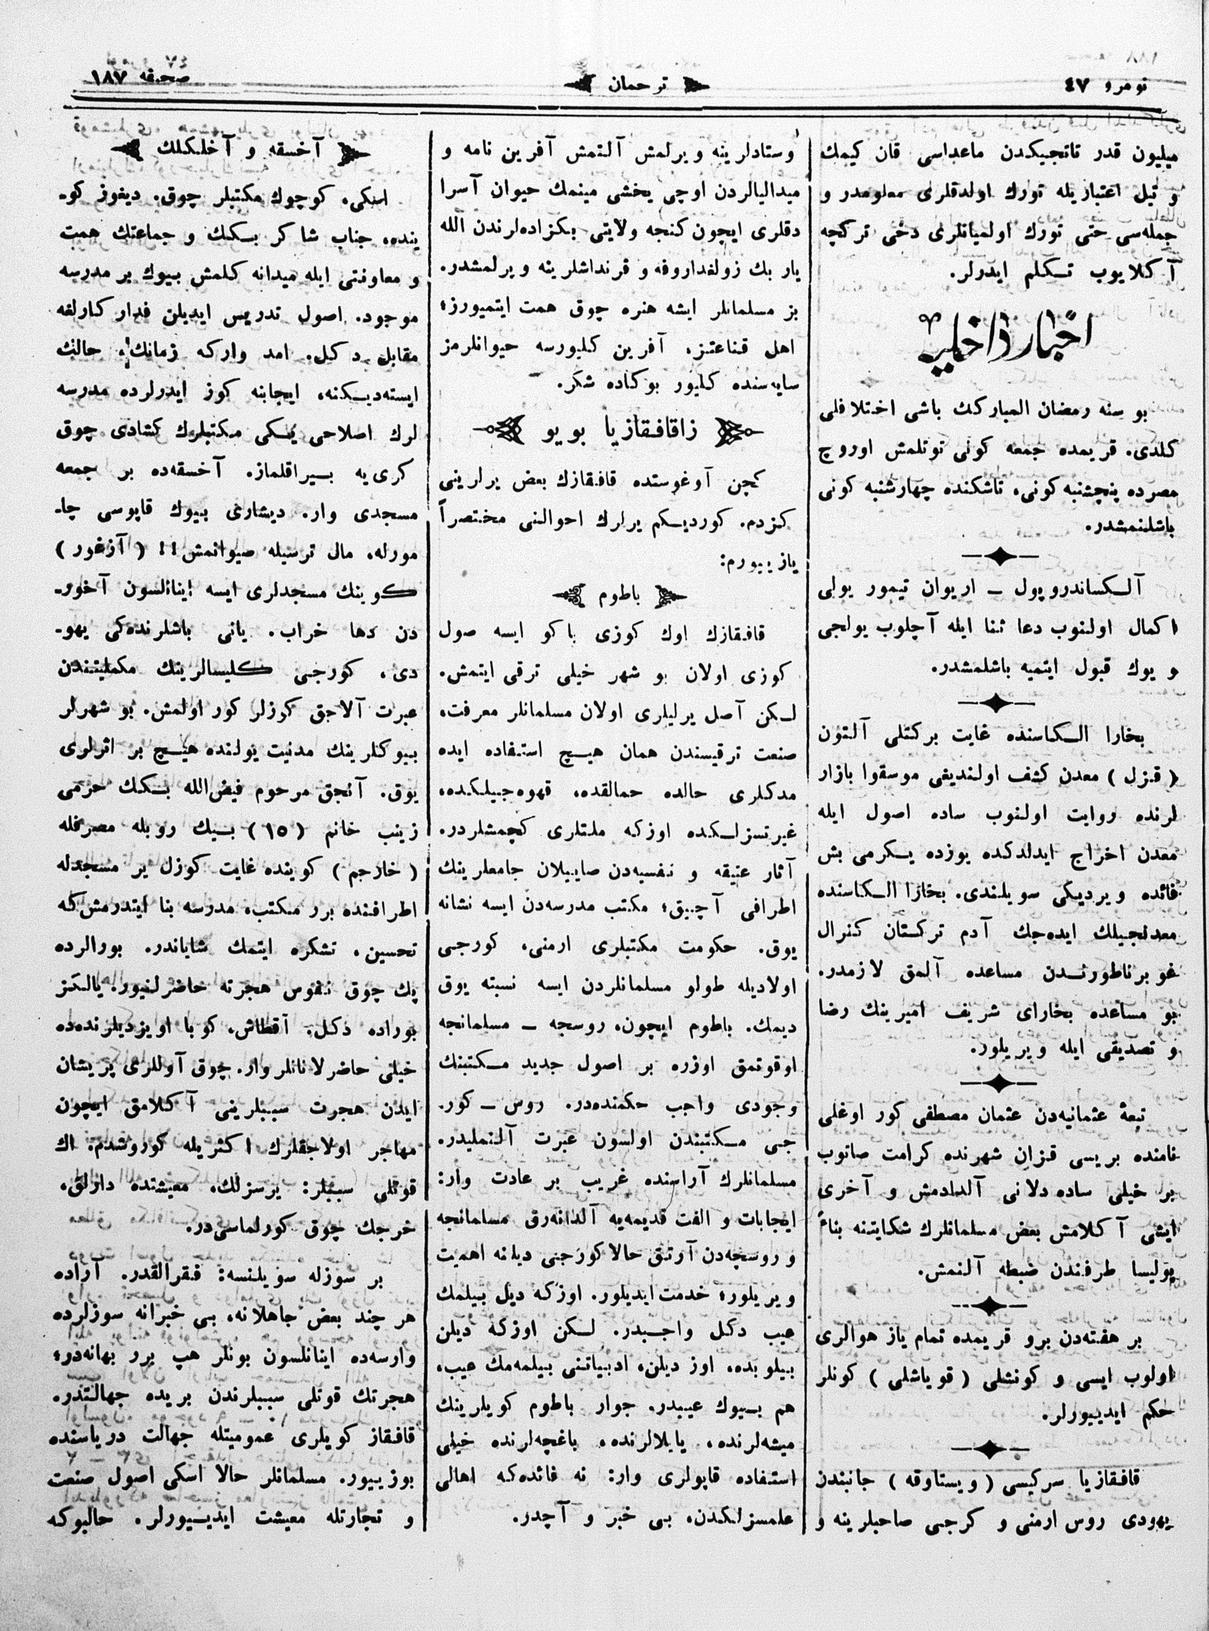 نومرو ٤٧
ترجمان
صحیفه ١٨٧
میلیون قدر تاتجیكدن ماعداسی قان كیمك
و تیل اعتباریله تورك اولدقلری معلومدر و
جمله‌سی حتی تورك اولمیانلری دخی تركچه
آكلایوب تكلم ایدرلر.
اخبار داخلیه
بو سنه رمضان المبارك باشی اختلافلی
كلدی. قریمده جمعه كونی توتلمش اوروچ
مصرده پنچشنبه كونی، تاشكنده چهارشنبه كونی
باشلنمشدر.
آلكساندروپول ـ اریوان تیمور یولی
اكمال اولنوب دعا ثنا ایله آچلوب یولجی
و یوك قبول ایتمیه باشلمشدر.
بخارا الكاسنده غایت بركتلی آلتون
( قزل ) معدن كشف اولندیغی موسقوا بازار
لرنده روایت اولنوب ساده اصول ایله
معدن اخراج ایدلدكده یوزده یكرمی بش
فائده ویردیكی سویلندی. بخارا الكاسنده
معدنجیلك ایده‌جك آدم تركستان كنرال
غوبرناطورندن مساعده آلمق لازمدر.
بو مساعده بخارای شریف امیرینك رضا
و تصدیقی ایله ویریلور.
تبعهٔ عثمانیه‌دن عثمان مصطفی كور اوغلی
نامنده بریسی قزان شهرنده كرامت صاتوب
بر خیلی ساده دلانی آلدادمش و آخری
ایشی آكلامش بعض مسلمانلرك شكایتنه بناءً
پولیسا طرفندن ضبطه آلنمش.
بر هفته‌دن برو قریمده تمام یاز هوالری
اولوب ایسی و كونشلی ( قویاشلی ) كونلر
حكم ایدییورلر.
قافقازیا سركیسی ( ویستاوقه ) جانبندن
یهودی روس ارمنی و كرجی صاحبلرینه و
وستادلرینه ویرلمش آلتمش آفرین نامه و
میدالیالردن اوچی یخشی مینمك حیوان آسرا
دقلری ایچون كنجه ولایتی بكزاده‌لرندن الله
یار بك زولفداروفه و قرنداشلرینه ویرلمشدر.
بز مسلمانلر ایشه هنره چوق همت ایتمیورز؛
اهل قناعتز، آفرین كلیورسه حیوانلرمز
سایه‌سنده كلیور بوكاده شكر.
زاقافقازیا بویو
كچن آوغوستده قافقازك بعض یرلرینی
كزدم. كوردیكم یرلرك احوالنی مختصراً
یازییورم:
باطوم
قافقازك اوك كوزی باكو ایسه صول
كوزی اولان بو شهر خیلی ترقی ایتمش.
لكن آصل یرلیلری اولان مسلمانلر معرفت،
صنعت ترقیسندن همان هیچ استفاده ایده
مدكلری حالده حمالقده، قهوه‌جیلكده،
غیرتسزلكده اوزكه ملتلری كچمشلردر.
آثار عتیقه و نفسیه‌دن صاییلان جامعلرینك
اطرافی آچیق؛ مكتب مدرسه‌دن ایسه نشانه
یوق. حكومت مكتبلری ارمنی، كورجی
اولادیله طولو مسلمانلردن ایسه نسبته یوق
دیمك. باطوم ایچون، روسچه ـ مسلمانجه
اوقوتمق اوزره بر اصول جدید مكتبنك
وجودی واجب حكمنده‌در. روس ـ كور
جی مكتبندن اولسون عبرت آلنملیدر.
مسلمانلرك آراسنده غریب بر عادت وار:
ایجابات و الفت قدیمه‌یه آلدانه‌رق مسلمانجه
و روسچه‌دن آرتق حالا كورجی دیلنه اهمیت
ویریلور؛ خدمت ایدیلور. اوزكه دیل بیلمك
عیب دكل واجبدر. لكن اوزكه دیلن
بیلوبده، اوز دیلن، ادبیاتنی بیلمه‌مك عیب،
هم بیوك عیبدر. جوار باطوم كویلرینك
میشه‌لرنده، یایلالرنده، باغچه‌لرنده خیلی
استفاده قابولری وار: نه فائده‌كه اهالی
علمسزلكدن، بی خبر و آچدر.
آخسقه و آخلكلك
اسكی، كوچوك مكتبلر چوق. دیغوز كو
ینده، جناب شاكر بكك و جماعتك همت
و معاونتی ایله میدانه كلمش بیوك بر مدرسه
موجود. اصول تدریس ایدیلن قدار كارلغه
مقابل دكل. امد واركه زمانك، حالك
ایسته‌دیكنه، ایجابنه كوز ایدرلرده مدرسه
لرك اصلاحی یكی مكتبلرك كشادی چوق
كری‌یه بیراقلماز. آخسقه‌ده بر جمعه
مسجدی وار. دیشارغی بیوك قاپوسی چا
مورله، مال ترسیله صیوانمش!! ( آزغور )
كوینك مسجدلری ایسه اینانلسون آخور
دن دها خراب. یانی باشلرنده‌كی یهو
دی، كورجی كلیسالرینك مكملیتندن
عبرت آلاجق كوزلر كور اولمش. بو شهرلر
بیوكلرینك مدنیت یولنده هیچ بر اثرلری
یوق. آنجق مرحوم فیض‌الله بكك حرمی
زینب خانم (١٥) بیك روبله مصرفله
( خارجم ) كوینده غایت كوزل بر مسجدله
اطرافنده برر مكتب، مدرسه بنا ایتدرمش‌كه
تحسین، تشكره ایتمك شایاندر. بورالرده
پك چوق نفوس هجرته حاضرلنیور. یالكز
بوراده دكل، آقطاش، كوبا اویزدیلرنده‌ده
خیلی حاضرلانانلر وار. چوق آوللری پریشان
ایدن هجرت سببلرینی آكلامق ایچون
مهاجر اولاجقلرك اكثریله كوروشدم. اك
قوتلی سببلر: یرسزلك، معیشتده دارلق،
خرجك چوق كورلماسی‌در.
بر سوزله سویلنسه: فقرالقدر. آراده
هر چند بعض جاهلانه، بی خبرانه سوزلرده
وارسه‌ده اینانلسون بونلر هپ برر بهانه‌در؛
هجرتك قوتلی سببلرندن بریده جهالتدر.
قافقاز كویلری عمومیتله جهالت دریاسنده
یوزییور. مسلمانلر حالا اسكی اصول صنعت
و تجارتله معیشت ایدییورلر. حالبوكه